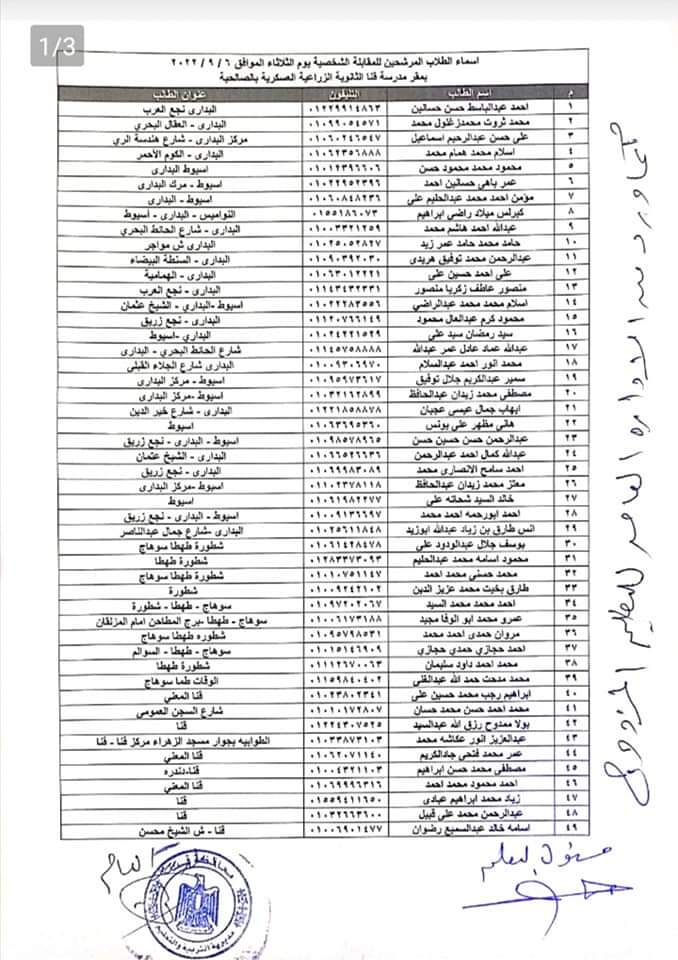 1/3
اسماء الطلاب المرشحين للمقابلة الشخصية يوم الثلاثاء الموافق ٦ / ٩ / ٢٠٢٢
بمقر مدرسة قنا الثانوية الزراعية العسكرية بالصالحية
م اسم الطالب التليفون عنوان الطالب
١ احمد عبدالباسط حسن حسانين ٠١٢٢٩٩١٤٨٦٣ البدارى نجع العرب
٢ محمد ثروت محمدزغلول محمد ٠١٠٩٩٠٥٤٥٧١ البدارى - العقال البحري
٣ على حسن عبدالرحيم اسماعيل ٠١٠٦٠٢٤٦٥٤٧ مركز البدارى - شارع هندسة الري
٤ اسلام محمد همام محمد ٠١٠٦٢٣٥٦٨٨٨ البدارى - الكوم الأحمر
٥ محمود محمد محمود حسن ٠١٠١٢٣٩٦٦٠٦ اسيوط البدارى
٦ عمر باهى حسانين احمد ٠١٠٢٢٩٥٢٣٩٦ اسيوط - مرك البدارى
٧ مؤمن احمد محمد عبدالحليم على ٠١٠٦٠٨٤٨٢٣٦ اسيوط - البدارى
٨ كيرلس ميلاد راضي ابراهيم ٠١٥٥١٨٦٠٧٣ النواميس - البدارى - أسيوط
٩ عبدالله احمد هاشم محمد ٠١٠٠٣٣٢١٢٥٩ البدارى - شارع الحائط البحري
١٠ حامد محمد حامد عمر زيد ٠١٠٢٥٠٥٢٨٢٧ البدارى ش مواجر
١١ عبدالرحمن محمد توفيق هريدى ٠١٠٩٠٣٩٢٠٣٠ البدارى - السنطة البيضاء
١٢ على احمد حسين على ٠١٠٦٣٠١٢٢٢١ البدارى - الهمامية
١٣ منصور عاطف زكريا منصور ٠١١٤٣٤٣٢٣٣١ البدارى - نجع العرب
١٤ اسلام محمد محمد عبدالراضي ٠١٠٢٢٨٣٥٥٦ اسيوط -البداري - الشيخ عثمان
١٥ محمود كرم عبدالعال محمود ٠١١٢٠٧٦٦١٤٩ البدارى - نجع زريق
١٦ سيد رمضان سيد على ٠١٠٢٤٢٢١٥٢٩ البداري -اسيوط
١٧ عبدالله عماد عادل عمر عبدالله ٠١١٤٥٧٥٨٨٨٨ شارع الحائط البحري - البدارى
١٨ محمد انور احمد عبدالسلام ٠١٠٠٩٣٠٦٩٧٠ البدارى شارع الجلاء القبلى
١٩ سمير عبدالكريم جلال توفيق ٠١٠٩٥٩٧٣٦١٧ اسيوط - مركز البدارى
٢٠ مصطفى محمد زيدان عبدالحافظ ٠١٠٣٢١٦٢٨٩٩ اسيوط -مركز البدارى
٢١ ايهاب جمال عيسى عجبان ٠١٢٢١٨٥٨٨٧٨ البدارى - شارع خير الدين
٢٢ هانى مظهر على يونس ٠١٠٦٣٦٩٥٣٦٠ اسيوط
٢٣ عبدالرحمن حسن حسين حسن ٠١٠٩٨٥٧٨٩٦٥ اسيوط - البدارى - نجع زريق
٢٤ عبدالله كمال احمد عبدالرحمن ٠١٠٦٦٥٢٦٦٣٦ البدارى - الشيخ عثمان
٢٥ احمد سامح الانصارى محمد ٠١٠٦٩٩٨٣٠٨٩ البدارى - نجع زريق
٢٦ معتز محمد زيدان عبدالحافظ ٠١١٠٢٣٧٨١١٨ اسيوط -مركز البدارى
٢٧ خالد السيد شحاته على ٠١٠٦١٩٨٢٢٧٧ اسيوط
٢٨ احمد ابورحمه احمد محمد ٠١٠٠٩١٣٦٦٩٧ اسيوط - البدارى - نجع زريق
٢٩ انس طارق بن زياد عبدالله ابوزيد ٠١٠٢٥٦١١٨٤٨ البدارى -شارع جمال عبدالناصر
٣٠ يوسف جلال عبدالودود على ٠١٠٦١٤٢٨٤٧٨ شطورة طهطا سوهاج
٣١ محمود اسامه محمد عبدالحليم ٠١٢٨٣٣٧٣٠٩٣ شطورة طهطا
٣٢ محمد حسنى محمد احمد ٠١٠١٠٧٥١١٤٧ شطورة طهطا سوهاج
٣٣ طارق بخيت محمد عزيز الدين ٠١٠٠٩٢٤٢١٠٢ شطورة
٣٤ احمد محمد محمد السيد ٠١٠٩٧٢٠٢٠٦٧ سوهاج - طهطا - شطورة
٣٥ عمرو محمد ابو الوفا مجيد ٠١٠٠٦١٧٣١٨٨ سوهاج - طهطا -برج المطاحن امام المزلقان
٣٦ مروان حمدى احمد محمد ٠١٠٩٥٧٩٨٥٣١ شطوره طهطا سوهاج
٣٧ احمد حجازي حمدي حجازي ٠١٠١٥١٤٦٩٠٩ سوهاج - طهطا - السوالم
٣٨ محمد احمد داود سليمان ٠١١١٢٦٧٠٠٦٣ شطورة طهطا
٣٩ محمد مدحت حمد الله عبدالغلى ٠١١٥٩٨٤٠٤٠٢ الوقات طما سوهاج
٤٠ ابراهيم رجب محمد حسين على ٠١٠٢٣٨٠٢٣٤١ قنا المعني
٤١ محمد احمد حسن محمد حسان ٠١٠١٠١٧٢٨٠٧ شارع السجن العمومى
٤٢ بولا ممدوح رزق الله عبدالسيد ٠١٢٢٤٣٠٧٥٢٥ قنا
٤٣ عبدالعزيز انور عكاشه محمد ٠١٠٣٣٨٧٣١٠٣ الطوابيه بجوار مسجد الزهراء مركز قنا - قنا
٤٤ عمر محمد فتحى جادالكريم ٠١٠٦٢٠٧١١٤٠ قنا المعني
٤٥ مصطفى محمد حسن ابراهيم ٠١٠٠٤٣٢١١٠٣ قنا-دندره
٤٦ احمد محمود محمد احمد ٠١٠٦٩٩٩٦٣١٦ قنا المعني
٤٧ زياد محمد ابراهيم عبادى ٠١٥٥٩٤١١٦٥٠ قنا
٤٨ عبدالرحمن محمد على قبيل ٠١٠٣٢٦٦٣٦٠٠ قنا
٤٩ اسامه خالد عبدالسميع رضوان ٠١٠٠٦٩٠١٤٧٧ قنا - ش الشيخ محسن
مسئول التعليم
مديرية التربية والتعليم